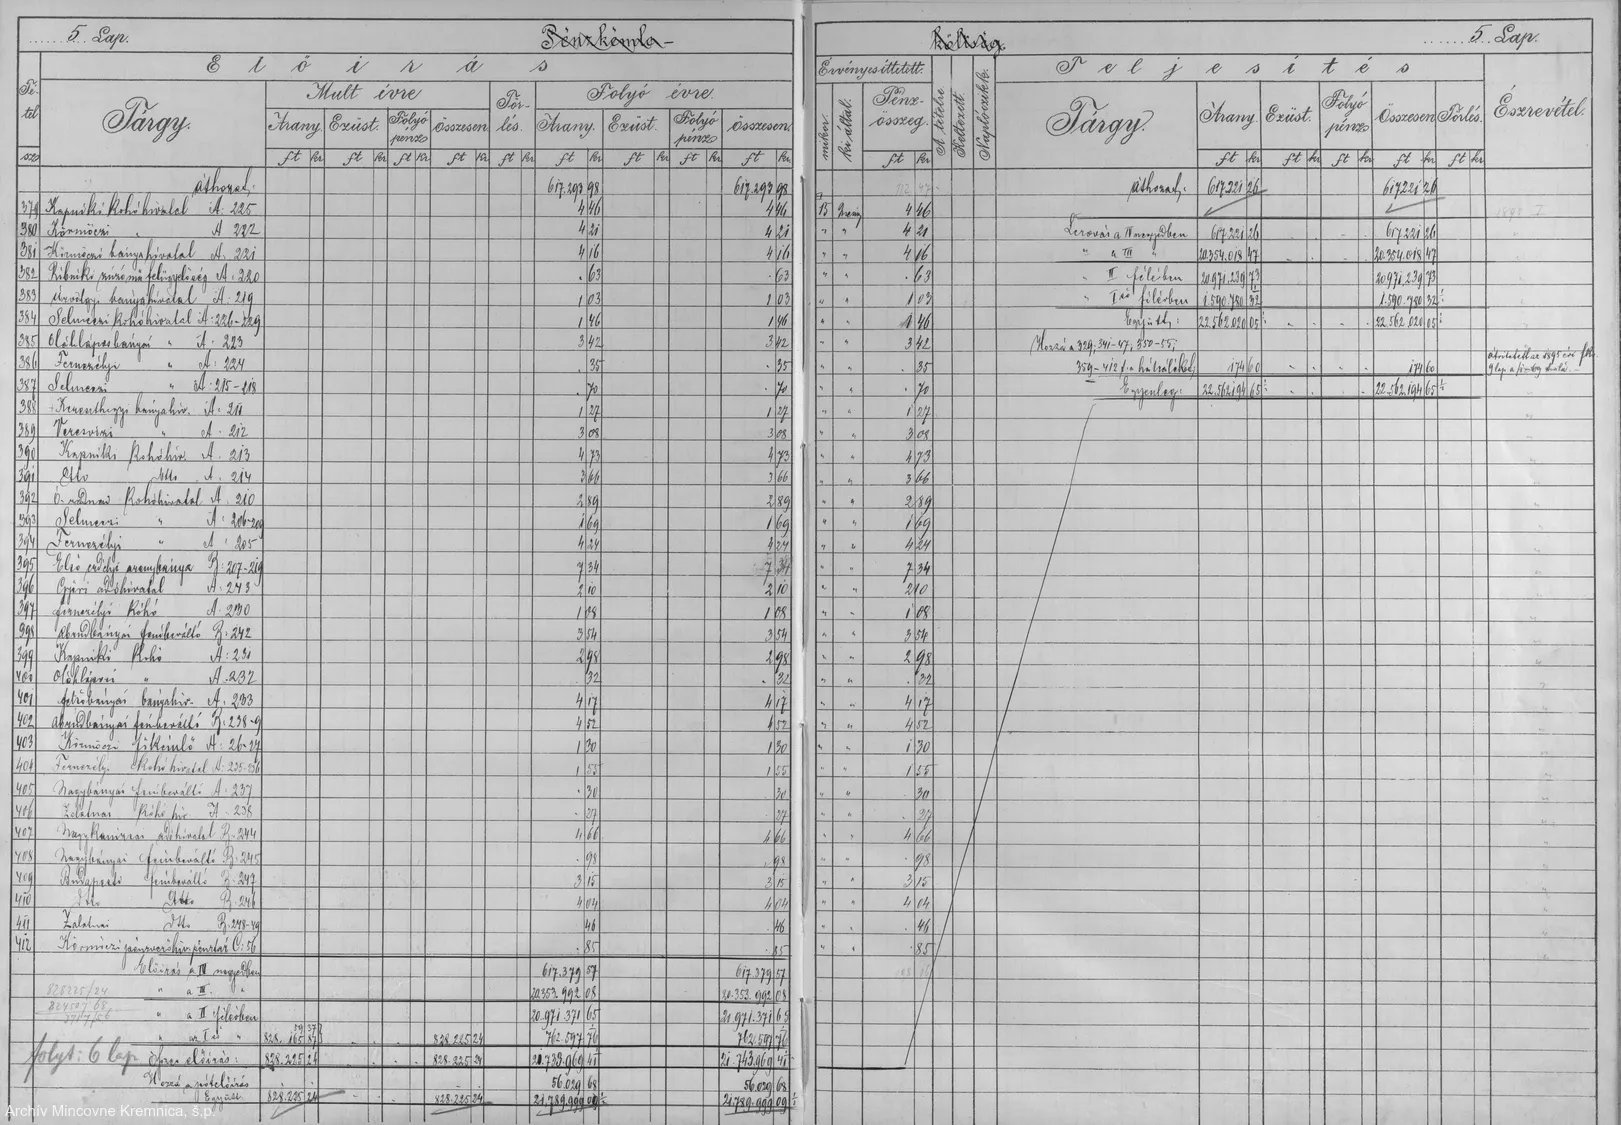 5. Lap.
Pénzkémla
költség
5. Lap.
Előirás
Tétel
Tárgy.
Mult évre
Törlés.
Folyó évre.
Arany. Ezüst. Folyó pénz Összesen.
Arany. Ezüst. Folyó pénz Összesen.
ft kr ft kr ft kr ft kr ft kr ft kr ft kr ft kr ft kr
Áthozat: 617.293 98 617.293 98
379 Kapniki kohóhivatal A: 225 4 46 4 46
380 Körmöczi " A 222 4 21 4 21
381 Körmöczi bányahivatal A: 221 4 16 4 16
382 A: 220 . 63 . 63
383 bányahivatal A: 219 1 03 1 03
384 Selmeczi kohóhivatal A: 226-229 1 46 1 46
385 Oláhláposbányai " A: 223 3 42 3 42
386 Fernezélyi " A: 224 . 35 . 35
387 Selmeczi " A: 215-218 . 70 . 70
388 Kereszthegyi bányahiv. A: 211 1 27 1 27
389 Veresvizi " A: 212 3 08 3 08
390 Kapniki Kohóhiv. A. 213 4 73 4 73
391 Dtto dtto A. 214 3 66 3 66
392 Ó-radnai Kohóhivatal A: 210 2 89 2 89
393 Selmeczi " A: 206-209 1 69 1 69
394 Fernezélyi " A: 205 4 24 4 24
395 Első erdélyi aranybánya B: 207-219 7 34 7 34
396 adóhivatal A: 243 2 10 2 10
397 Fernezélyi Kohó A: 230 1 08 1 08
398 Abrudbányai fémbeváltó B: 242 3 54 3 54
399 Kapniki Kohó A: 231 2 98 2 98
400 " A. 232 . 32 . 32
401 Felsőbányai bányahiv. A: 233 4 17 4 17
402 Abrudbányai fémbeváltó B: 238-9 4 52 4 52
403 Körmöczi főkémlő A: 26-27 1 30 1 30
404 Fernezélyi Kohóhivatal A: 235-236 1 55 1 55
405 Nagybányai fémbeváltó A: 237 . 30 . 30
406 Zalatnai Kohó hiv. A. 238 . 27 . 27
407 Nagykanizsai adóhivatal B: 244 4 66 4 66
408 Nagybányai fémbeváltó B: 245 . 98 . 98
409 Budapesti fémbeváltó B: 247 3 15 3 15
410 Dtto Dtto B: 246 4 04 4 04
411 Zalatnai Dtto B: 248-49 . 46 . 46
412 C: 56 . 85 . 85
Előirás a IV negyedben 617.379 57 617.379 57
" a III. " 20.353.992 08 20.353.992 08
" a II félévben 20.971.371 65 20.971.371 65
folyt: 6 lap
828.225 24 828.225 24
Hozzá a pótelőirás 56.029 68 56.029 68
Együtt 828.225 24 828.225 24 21.789.999 09 21.789.999 09
Érvényesíttetett.
mikor ki által.
Pénzösszeg.
ft kr
A tételre
Keltezett.
Naplóczikk.
Teljesités
Tárgy.
Arany. Ezüst. Folyó pénz Összesen Törlés.
ft kr ft kr ft kr ft kr ft kr
Észrevétel.
15 4 46
" " 4 21
" " 4 16
" " . 63
" " 1 03
" " 1 46
" " 3 42
" " . 35
" " . 70
" " 1 27
" " 3 08
" " 4 73
" " 3 66
" " 2 89
" " 1 69
" " 4 24
" " 7 34
" " 2 10
" " 1 08
" " 3 54
" " 2 98
" " . 32
" " 4 17
" " 4 52
" " 1 30
" " 1 55
" " . 30
" " . 27
" " 4 66
" " . 98
" " 3 15
" " 4 04
" " . 46
" " . 85
Áthozat: 617.221 26 617.221 26
Lerovás a IV negyedben 617.221 26 617.221 26
" a III " 20.354.018 47 20.354.018 47
" II félévben 20.971.239 73 20.971.239 73
" I ső félévben 1.590.780 32 1.590.780 32
Együtt: 22.562.020 05 22.562.020 05
Hozzá a 329, 341-47, 350-55,
359-412 t. a hátralékkal, 174 60 174 60
Egyenleg: 22.562.194 65 22.562.194 65
Archív Mincovne Kremnica, š.p.